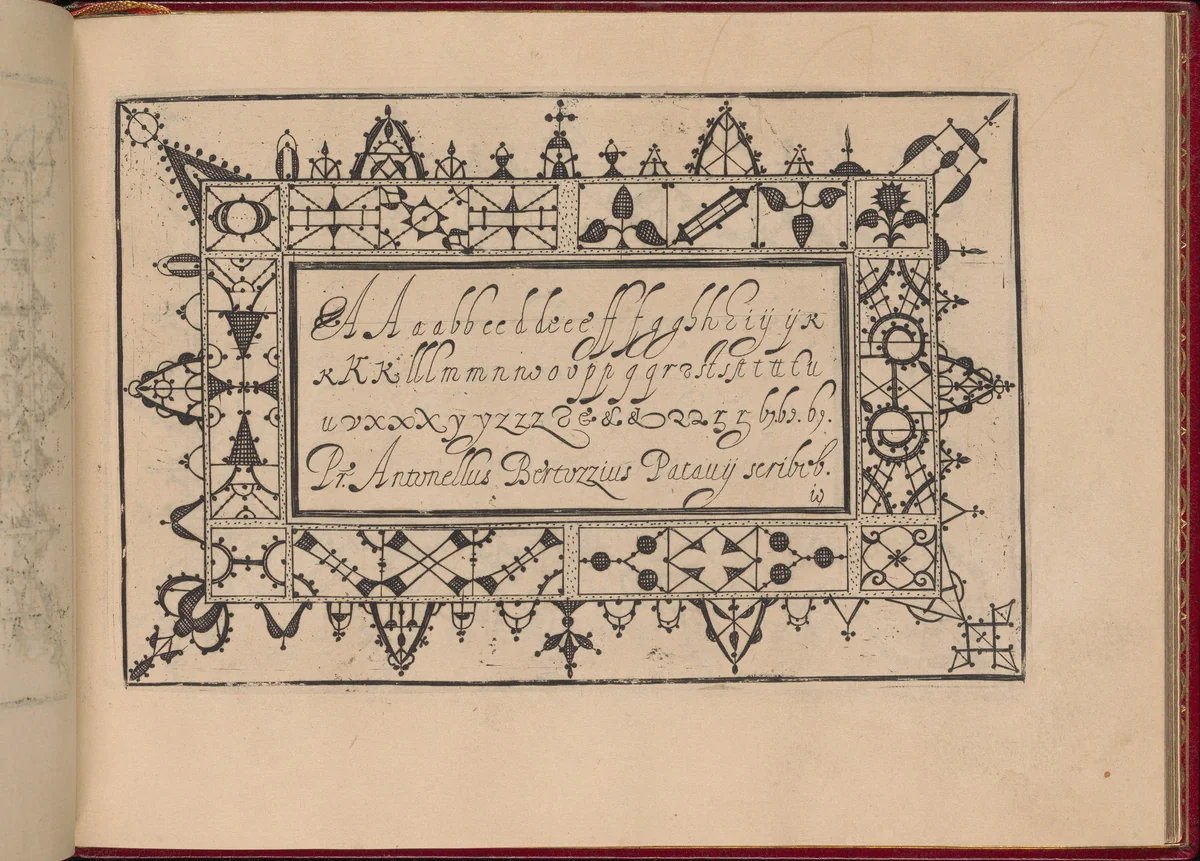 A A a a b b c c d d e e e ff f g g h h i ij ij k
k K k l l l m m n n o o v p p q q r s st st t t t t u
u v x x X y y z z z & & & &
Pr. Antonellus Bertozzius Patauij scribeb.